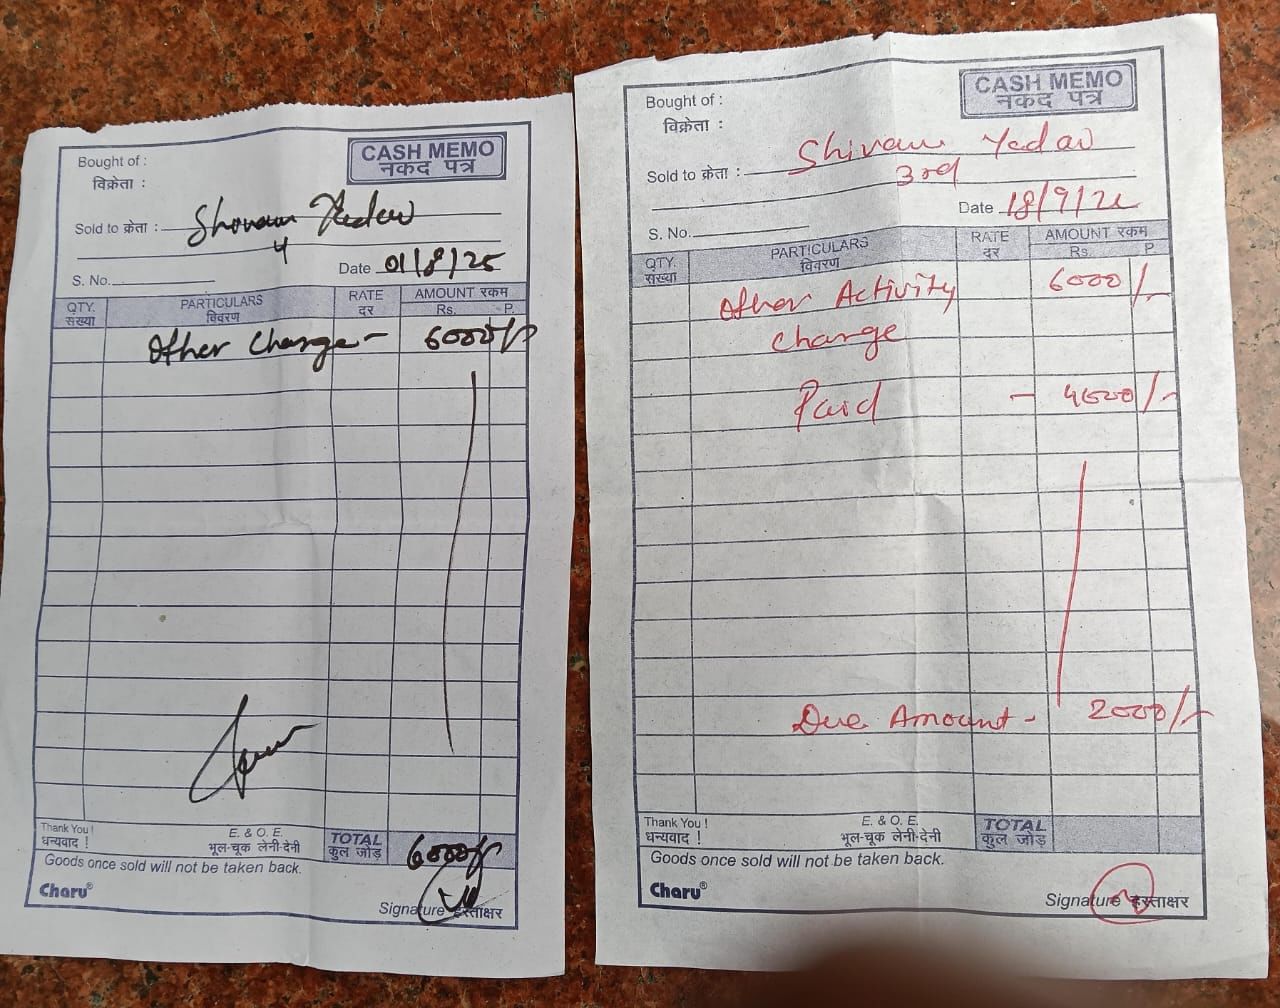 CASH MEMO
नकद पत्र
Bought of :
विक्रेता :
Sold to क्रेता :
4
S. No.
Date 01/8/25
QTY. संख्या
PARTICULARS विवरण
RATE दर
AMOUNT रकम
Rs. P.
Other Charge - 6000/-
Thank You !
धन्यवाद !
E. & O. E.
भूल-चूक लेनी-देनी
TOTAL
कुल जोड़
6000/-
Goods once sold will not be taken back.
Charu®
Signature हस्ताक्षर
CASH MEMO
नकद पत्र
Bought of :
विक्रेता :
Sold to क्रेता : Shivam Yadav
3rd
Date 18/9/
S. No.
QTY. संख्या
PARTICULARS विवरण
RATE दर
AMOUNT रकम
Rs. P.
Other Activity 6000/-
Charge
Paid - 4000/-
Due Amount - 2000/-
Thank You !
धन्यवाद !
E. & O. E.
भूल-चूक लेनी-देनी
TOTAL
कुल जोड़
Goods once sold will not be taken back.
Charu®
Signature हस्ताक्षर